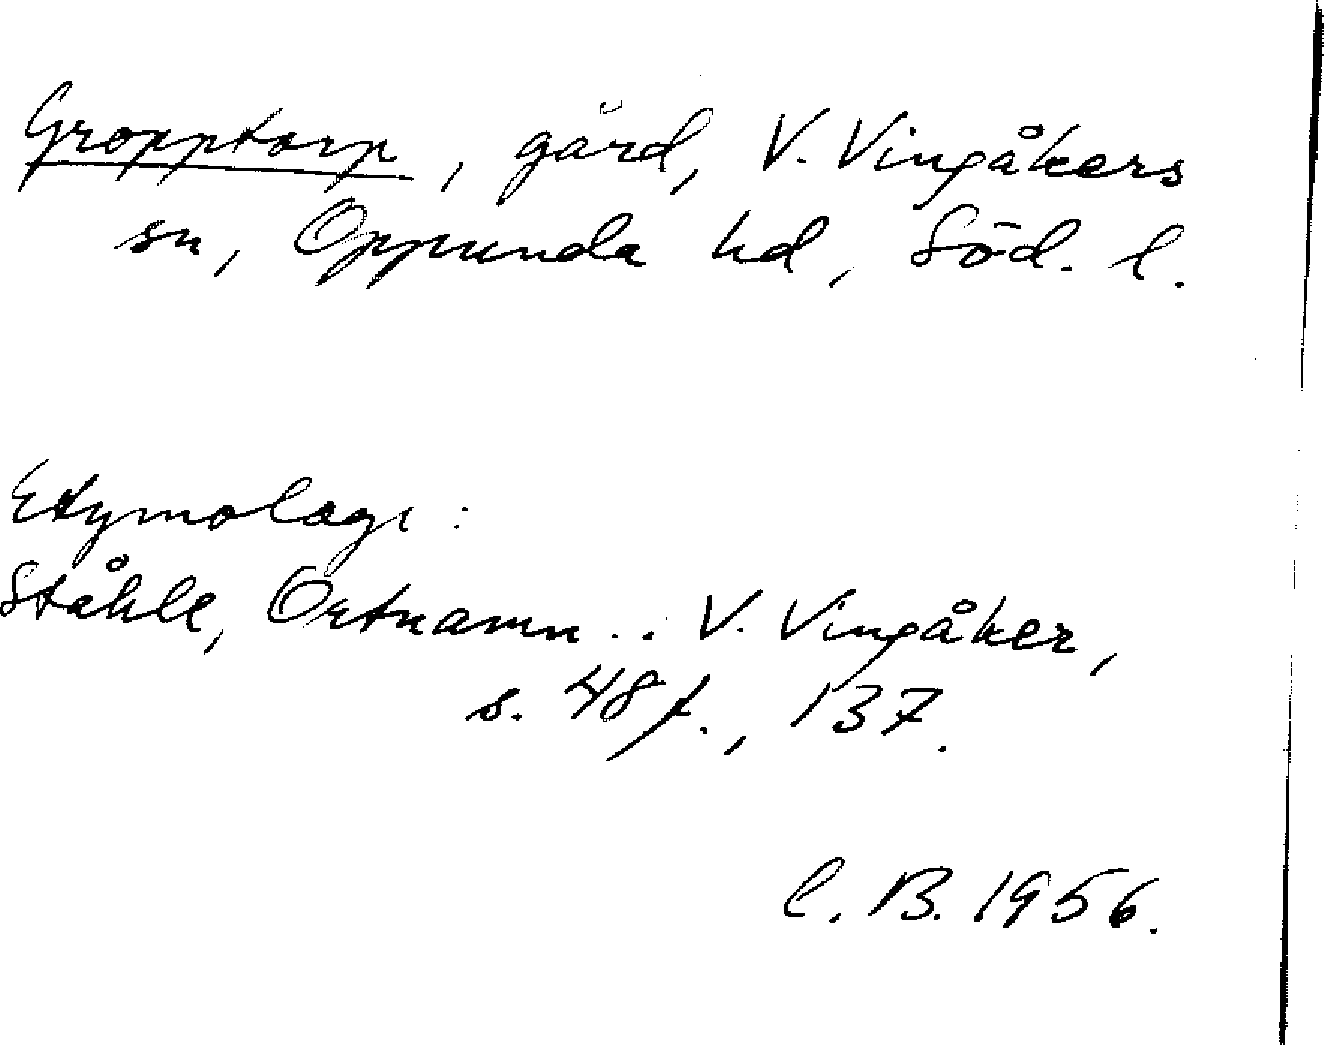 Gropptorp, gård, V. Vingåkers
sn, Oppunda hd, Söd. l.
Etymologi:
Ståhle, Ortnamn .. V. Vingåker,
s. 48 f., 137.
C. B. 1956.